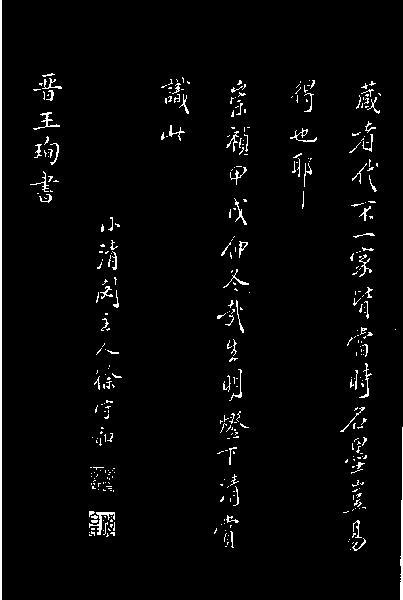 藏者代不一家皆當時名墨豈易
得也耶
崇禎甲戌仲冬哉生明燈下清賞
識此
小清閟主人徐守和
晋王珣書